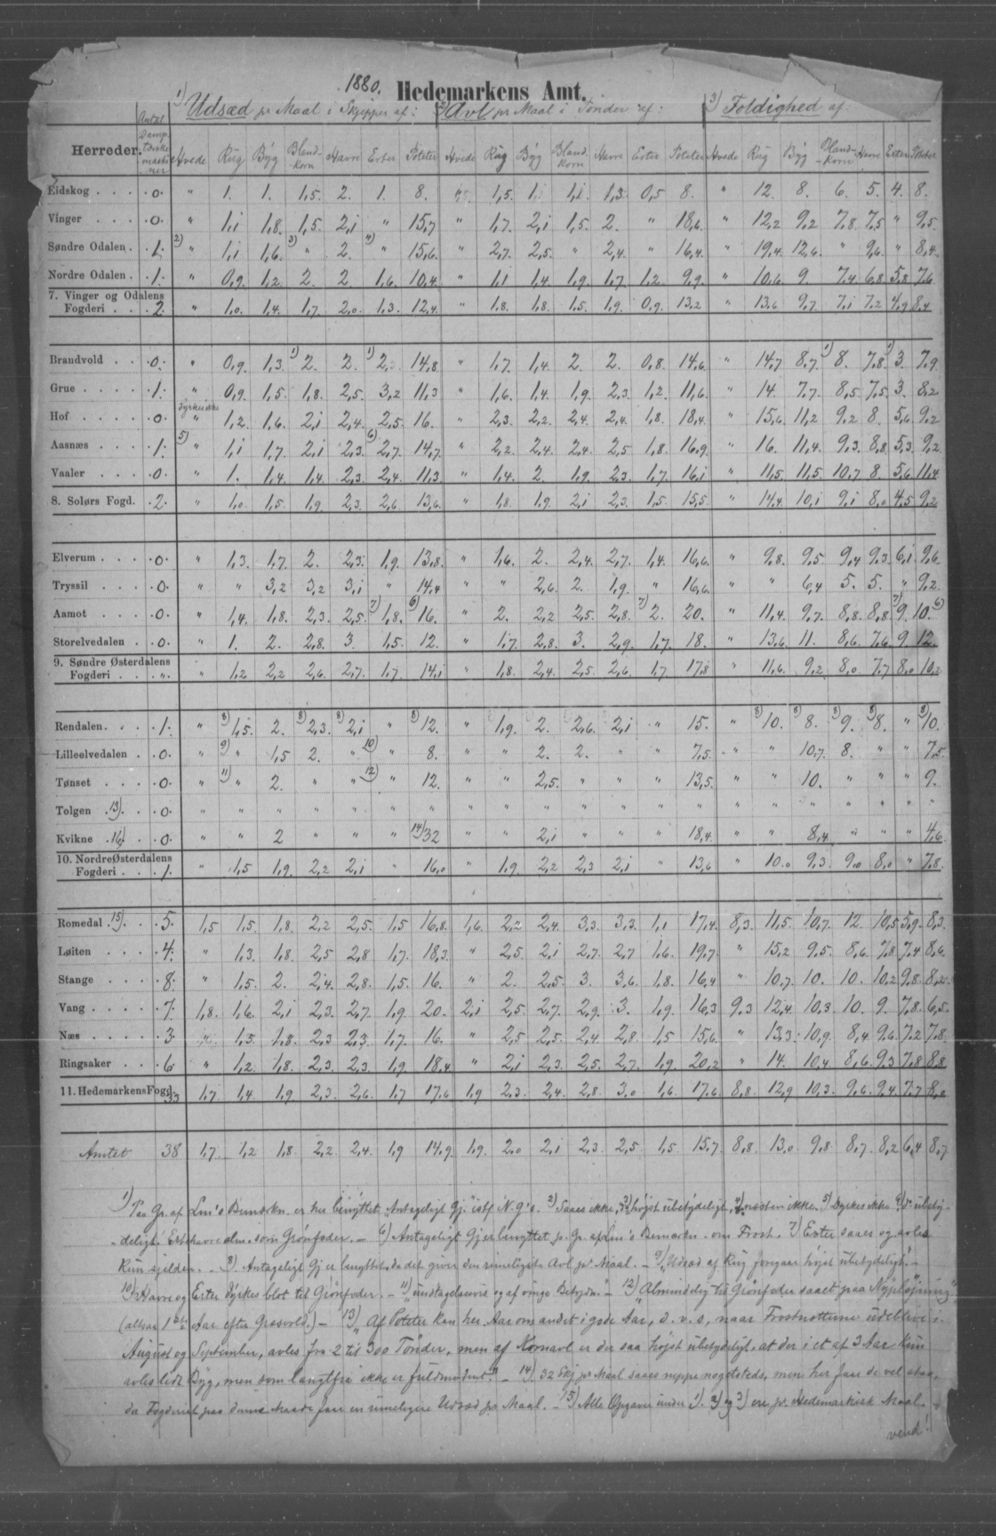 1880. Hedemarkens Amt.
1) Udsæd pr Maal i Skjepper af: 2) Avl pr Maal i Tønder af: 3) Foldighed af:
Herreder. Antal Damp- maski- ner Hvede Rug Byg Bland- korn Havre Erter Poteter Hvede Rug Byg Bland- korn Havre Erter Poteter Hvede Rug Byg Bland- korn Havre Erter Poteter
Eidskog . . . . 0. " 1. 1. 1,5 2. 1. 8. " 1,5 1. 1,1 1,3 0,5 8. " 12. 8. 6. 5. 4. 8.
Vinger . . . . 0. " 1,1 1,8. 1,5 2,1 " 15,7 " 1,7. 2,1 1,5 2. " 18,6 " 12,2 9,2 7,8 7,5 " 9,5
Søndre Odalen . 1. 2) " 1,1 1,6. 3) " 2. 4) " 15,6. " 2,7. 2,5. " 2,4. " 16,4 " 19,4 12,6. " 9,6 " 8,4
Nordre Odalen . 1. " 0,9. 1,2. 2. 2. 1,6. 10,4 " 1,1 1,4 1,9. 1,7. 1,2 9,9. " 10,6 9. 7,4 6,8 5,8 7,6
7. Vinger og Odalens Fogderi . . . 2. " 1,0 1,4. 1,7. 2,0. 1,3. 12,4. " 1,8. 1,8. 1,5 1,9. 0,9. 13,2 " 13,6 9,7. 7,1 7,2 4,9 8,4
Brandvold . . . 0. " 0,9. 1,3. 1) 2. 2. 1) 2. 14,8 " 1,7. 1,4. 2 2. 0,8 14,6. " 14,7 8,7. 1) 8. 7,8 1) 3. 7,9
Grue . . . . 1. " 0,9. 1,5. 1,8. 2,5. 3,2 11,3 " 1,6. 1,4. 1,9. 2,3. 1,2. 11,6. " 14. 7,7. 8,5 7,5 3. 8,2
Hof . . . . 0. Dyrkes ikke " 1,2. 1,6. 2,1 2,4. 2,5. 16. " 2,3. 2,2. 2,4. 2,4. 1,8. 18,4. " 15,6 11,2 9,2 8. 5,6 9,2
Aasnæs . . . 1. 5) " 1,1 1,7. 2,1 2,3. 6) 2,7. 14,7 " 2,2 2,4. 2,4. 2,5 1,8. 16,9. " 16. 11,4. 9,3. 8,8 5,3 9,2
Vaaler . . . 0. " 1. 1,4. 1,4. 2,3. 2,4. 11,3 " 1,4. 2. 1,9. 2,3. 1,7. 16,1 " 11,5 11,5 10,7 8. 5,6 11,4
8. Solørs Fogd. 2. " 1,0 1,5. 1,9. 2,3 2,6 13,6. " 1,8. 1,9. 2,1 2,3. 1,5. 15,5. " 14,4 10,1 9,1 8,0 4,5 9,2
Elverum . . . 0. " 1,3. 1,7. 2. 2,3. 1,9. 13,8. " 1,6. 2. 2,4. 2,7. 1,4. 16,6. " 9,8. 9,5 9,4 9,3 6,1 9,6
Tryssil . . . 0. " " 3,2 3,2 3,1 " 14,4 " " 2,6 2. 1,9. " 16,6. " " 6,4 5. 5. " 9,2
Aamot . . . . 0. " 1,4. 1,8. 2,3. 2,5. 7) 1,8. 6) 16. " 2. 2,2 2,5. 2,8. 7) 2. 20. " 11,4 9,7. 8,8 8,8 7) 9. 10. 6)
Storelvedalen . 0. " 1. 2. 2,8. 3. 1,5. 12. " 1,7. 2,8. 3. 2,9. 1,7. 18. " 13,6 11. 8,6. 7,6 9. 12.
9. Søndre Østerdalens Fogderi . . . " " 1,2 2,2 2,6. 2,7. 1,7. 14,1 " 1,8. 2,4. 2,5. 2,6. 1,7. 17,8 " 11,6. 9,2 8,0 7,7 8,0 10,2
Rendalen. . . 1. " 8) 1,5. 2. 8) 2,3. 8) 2,1 " 8) 12. " 1,9. 2. 2,6. 2,1 " 15. " 8) 10. 8) 8. 8) 9. 8) 8. " 8) 10.
Lilleelvedalen . 0. " 9) " 1,5 2. " 10) " 8. " " 2. 2. " " 7,5 " " 10,7. 8. " " 7,5
Tønset . . . 0. " 11) " 2. " " 12) " 12. " " 2,5. " " " 13,5 " " 10. " " " 9.
Tolgen 13) . . 0. " " " " " " " " " " " " " " " " " " " " "
Kvikne 16) . . 0. " " 2 " " " 14) 32 " " 2,1 " " " 18,4. " " 8,4 " " " 4,6
10. Nordre Østerdalens Fogderi . . 1. " 1,5 1,9. 2,2 2,1 " 16,0 " 1,9. 2,2 2,3 2,1 " 13,6 " 10,0 9,3. 9,0 8,0 " 7,8
Romedal 15) . . 5. 1,5 1,5. 1,8. 2,2 2,5. 1,5 16,8. 1,6. 2,2 2,4. 3,3. 3,3. 1,1 17,4. 8,3. 11,5 10,7. 12. 10,5 5,9. 8,3.
Løiten . . . 4. " 1,3. 1,8. 2,5 2,8 1,7. 18,3. " 2,5. 2,1 2,7. 2,7 1,6. 19,7 " 15,2 9,5. 8,6 7,8 7,4 8,6
Stange . . . 8. " 1,5. 2. 2,4. 2,8. 1,5. 16. " 2. 2,5. 3. 3,6. 1,8. 16,4 " 10,7. 10. 10. 10,2 9,8 8,2
Vang . . . . 7. 1,8. 1,6. 2,1 2,3. 2,7. 1,9 20. 2,1 2,5 2,7. 2,9. 3. 1,9. 16,3 9,3 12,4 10,3 10. 9. 7,8 6,5
Næs . . . . 3. " 1,5. 1,8. 2,3 2,3. 1,7 16. " 2,5 2,5. 2,4 2,8. 1,5 15,6. " 13,3. 10,9. 8,4 9,6 7,2 7,8
Ringsaker . . 6 " 1,2 1,8. 2,3. 2,3. 1,9 18,4 " 2,1 2,3. 2,5. 2,7. 1,9. 20,2 " 14. 10,4 8,6. 9,3 7,8 8,8
11. Hedemarkens Fogd. 33 1,7. 1,4 1,9 2,3. 2,6. 1,7 17,6 1,9 2,3. 2,4. 2,8. 3,0 1,6. 17,6 8,8 12,9 10,3. 9,6 9,4 7,7 8,0
Amtet 38 1,7. 1,2 1,8. 2,2 2,4. 1,9 14,9. 1,9. 2,0 2,1 2,3 2,5. 1,5 15,7. 8,8. 13,0 9,8 8,7. 8,2 6,4 8,7
1) Paa Gr. af Lm's Bemærkn. er her benyttet Antageligt Gj. istf. N. g's. 2) Saaes ikke, 3) høist ubetydeligt, 4) næsten ikke. 5) Dyrkes ikke
deligt. Erthavre alm. som Grønfoder. — 6) Antageligt Gj. er benyttet pr Gr. af Lm's Bemærkn. om Frost. 7) Erter saaes og avles
kun sjelden. — 8) Antageligt Gj. er benyttet da det giver den rimeligste Avl pr Maal. — 9) Udsæd af Rug forgaar høist ubetydeligt. —
10) Havre og Erter dyrkes blot til Grønfoder. — 11) undtagelsesvis og af ringe Betydn. — 12) "Almindelig til Grønfoder saaet paa Nypløining"
(altsaa 1ste Aar efter Græsvold.) — 13) "Af Poteter kan her Aar om andet i gode Aar, d. v. s, naar Frostnætterne udeblive i
August og September, avles fra 2 til 300 Tønder, men af Kornavl er der saa høist ubetydeligt, at der i et af 3 Aar kun
avles lidt Byg, men som langtfra ikke er fuldmodent." — 14) 32 Skj. pr Maal saaes neppe nogetsteds, men her
da Fogderiet paa denne Maade faar en rimeligere Udsæd pr Maal. — 15) Alle Opgaver under 1) 2) og 3) ere pr. Hedemarkisk Maal.
vend!